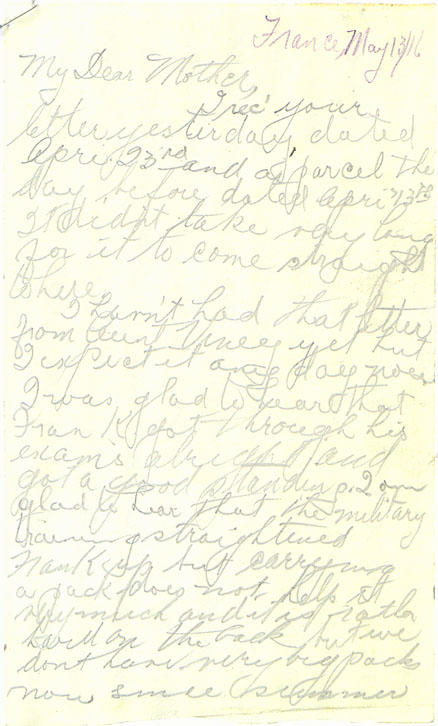 France, May 13/16
My Dear Mother,
I rec' your
letter yesterday, dated
April 23rd and a parcel the
day before dated April 13th
It didn't take very long
for it to come straight
here.
I havn't had that letter
from Aunt yet but
I expect it any day now
I was glad to hear that
Frank got through his
exams alright and
got a good standing. I am
glad to hear that the military
training straightened
Frank up but carrying
a pack does not help it
very much and it is rather
hard on the back but we
dont have very big packs
now since summer